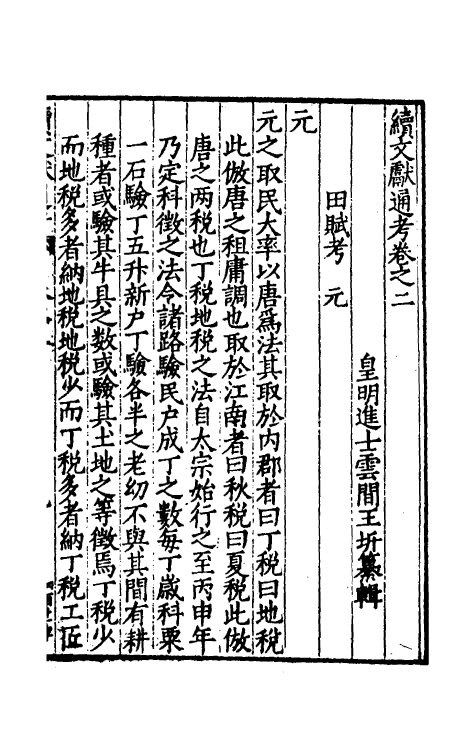 續文獻通考卷之二
皇明進士雲間王圻纂輯
田賦考 元
元
元之取民大率以唐爲法其取於内郡者曰丁税曰地税
此倣唐之租庸調也取於江南者曰秋税曰夏税此倣
唐之两税也丁税地税之法自太宗始行之至丙申年
乃定科徵之法令諸路驗民户成丁之數每丁歲科粟
一石驗丁五升新户丁驗各半之老幼不與其間有耕
種者或驗其牛具之數或驗其土地之等徵焉丁税少
而地税多者納地税地税少而丁税多者納丁税工匠